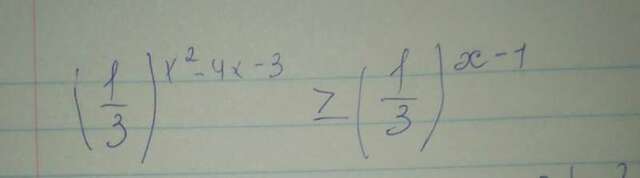 (1/3)^(x²-4x-3) ≥ (1/3)^(x-1)